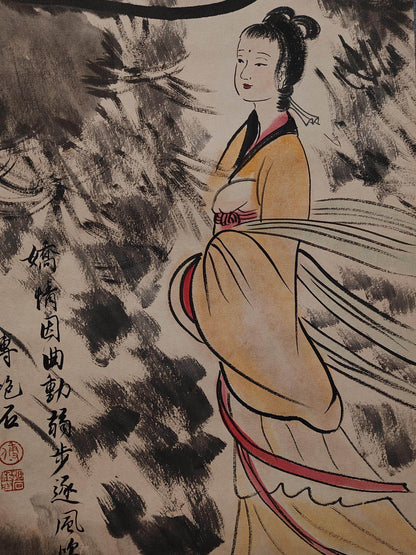 嬌情因曲動弱步逐風吹
傅抱石
傅